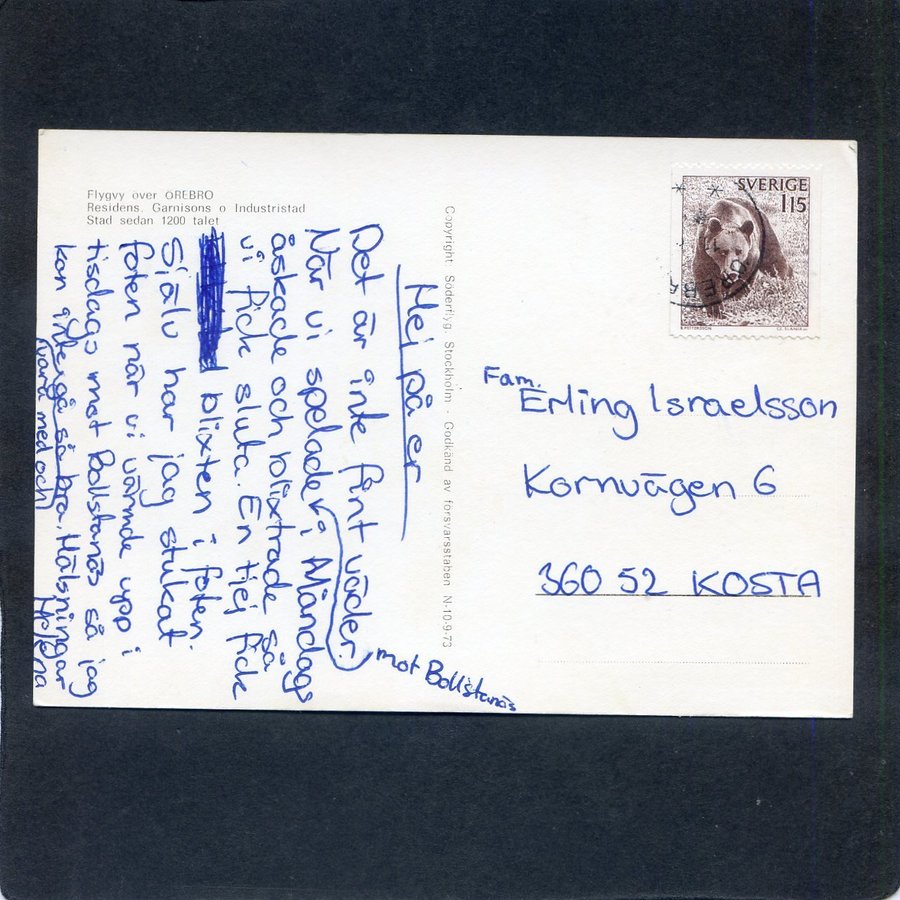 Flygvy över ÖREBRO
Residens, Garnisons o Industristad
Stad sedan 1200 talet
Hej på er
Det är inte fint väder.
När vi spelade i Måndags
mot Bollstanäs
åskade och blixtrade så
vi fick sluta. En tjej fick
blixten i foten.
Själv har jag stukat
foten när vi värmde upp i
tisdags mot Bollstanäs så jag
kan inte gå så bra. Hälsningar
vara med och
Helena
Copyright: Söderflyg, Stockholm - Godkänd av försvarsstaben N-10-9-73
SVERIGE
115
ÖREBRO
Fam.
Erling Israelsson
Kornvägen 6
360 52 KOSTA